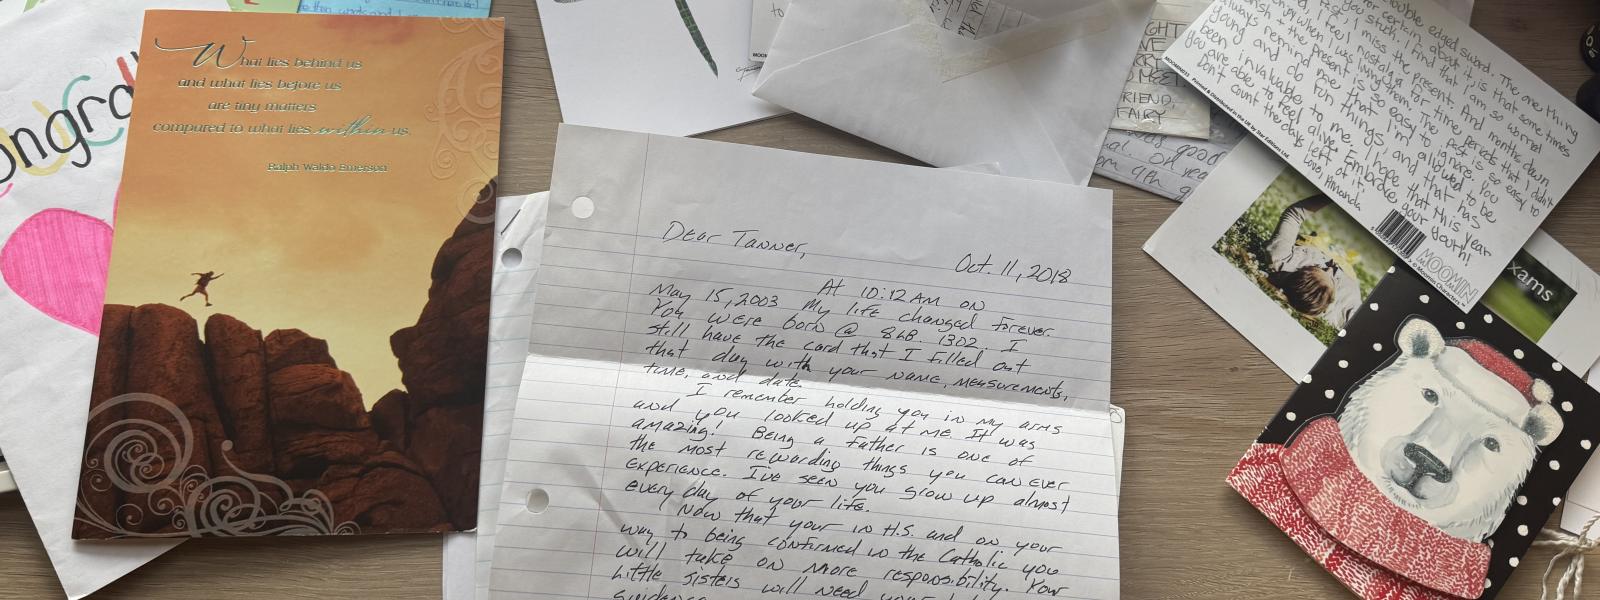 Congra
What lies behind us
and what lies before us
are tiny matters
compared to what lies within us.
Ralph Waldo Emerson
Dear Tanner,
Oct. 11, 2018
At 10:12 AM on
May 15, 2003 My life changed forever.
You were born @ 8LB. 13oz. I
still have the card that I filled out
that day with your name, measurements,
time, and date.
I remember holding you in my arms
and you looked up at me. It was
amazing! Being a father is one of
the most rewarding things you can ever
experience. I've seen you grow up almost
every day of your life.
Now that your in H.S. and on your
way to being confirmed in the Catholic you
will take on more responsibility. Your
little sisters will need your
guidance
FRIEND,
FAIRY
good
double edged sword. The one thing
for certain, about it is that sometimes
you stuck. I find that I am so worried
I miss the present. And months down
I feel nostalgic for time periods that I didn't
enjoy when I was living them. The past is so easy to
+ the present is so easy to ignore. You
always remind me that I'm allowed to be
young and do fun things, and that has
been invaluable to me. I hope that this year
you are able to feel alive. Embrace your youth!
Don't count the days left of it.
Love, Amanda
Printed & Distributed in the UK by Star Editions Ltd.
MOOMIN
© Moomin Characters™
xams